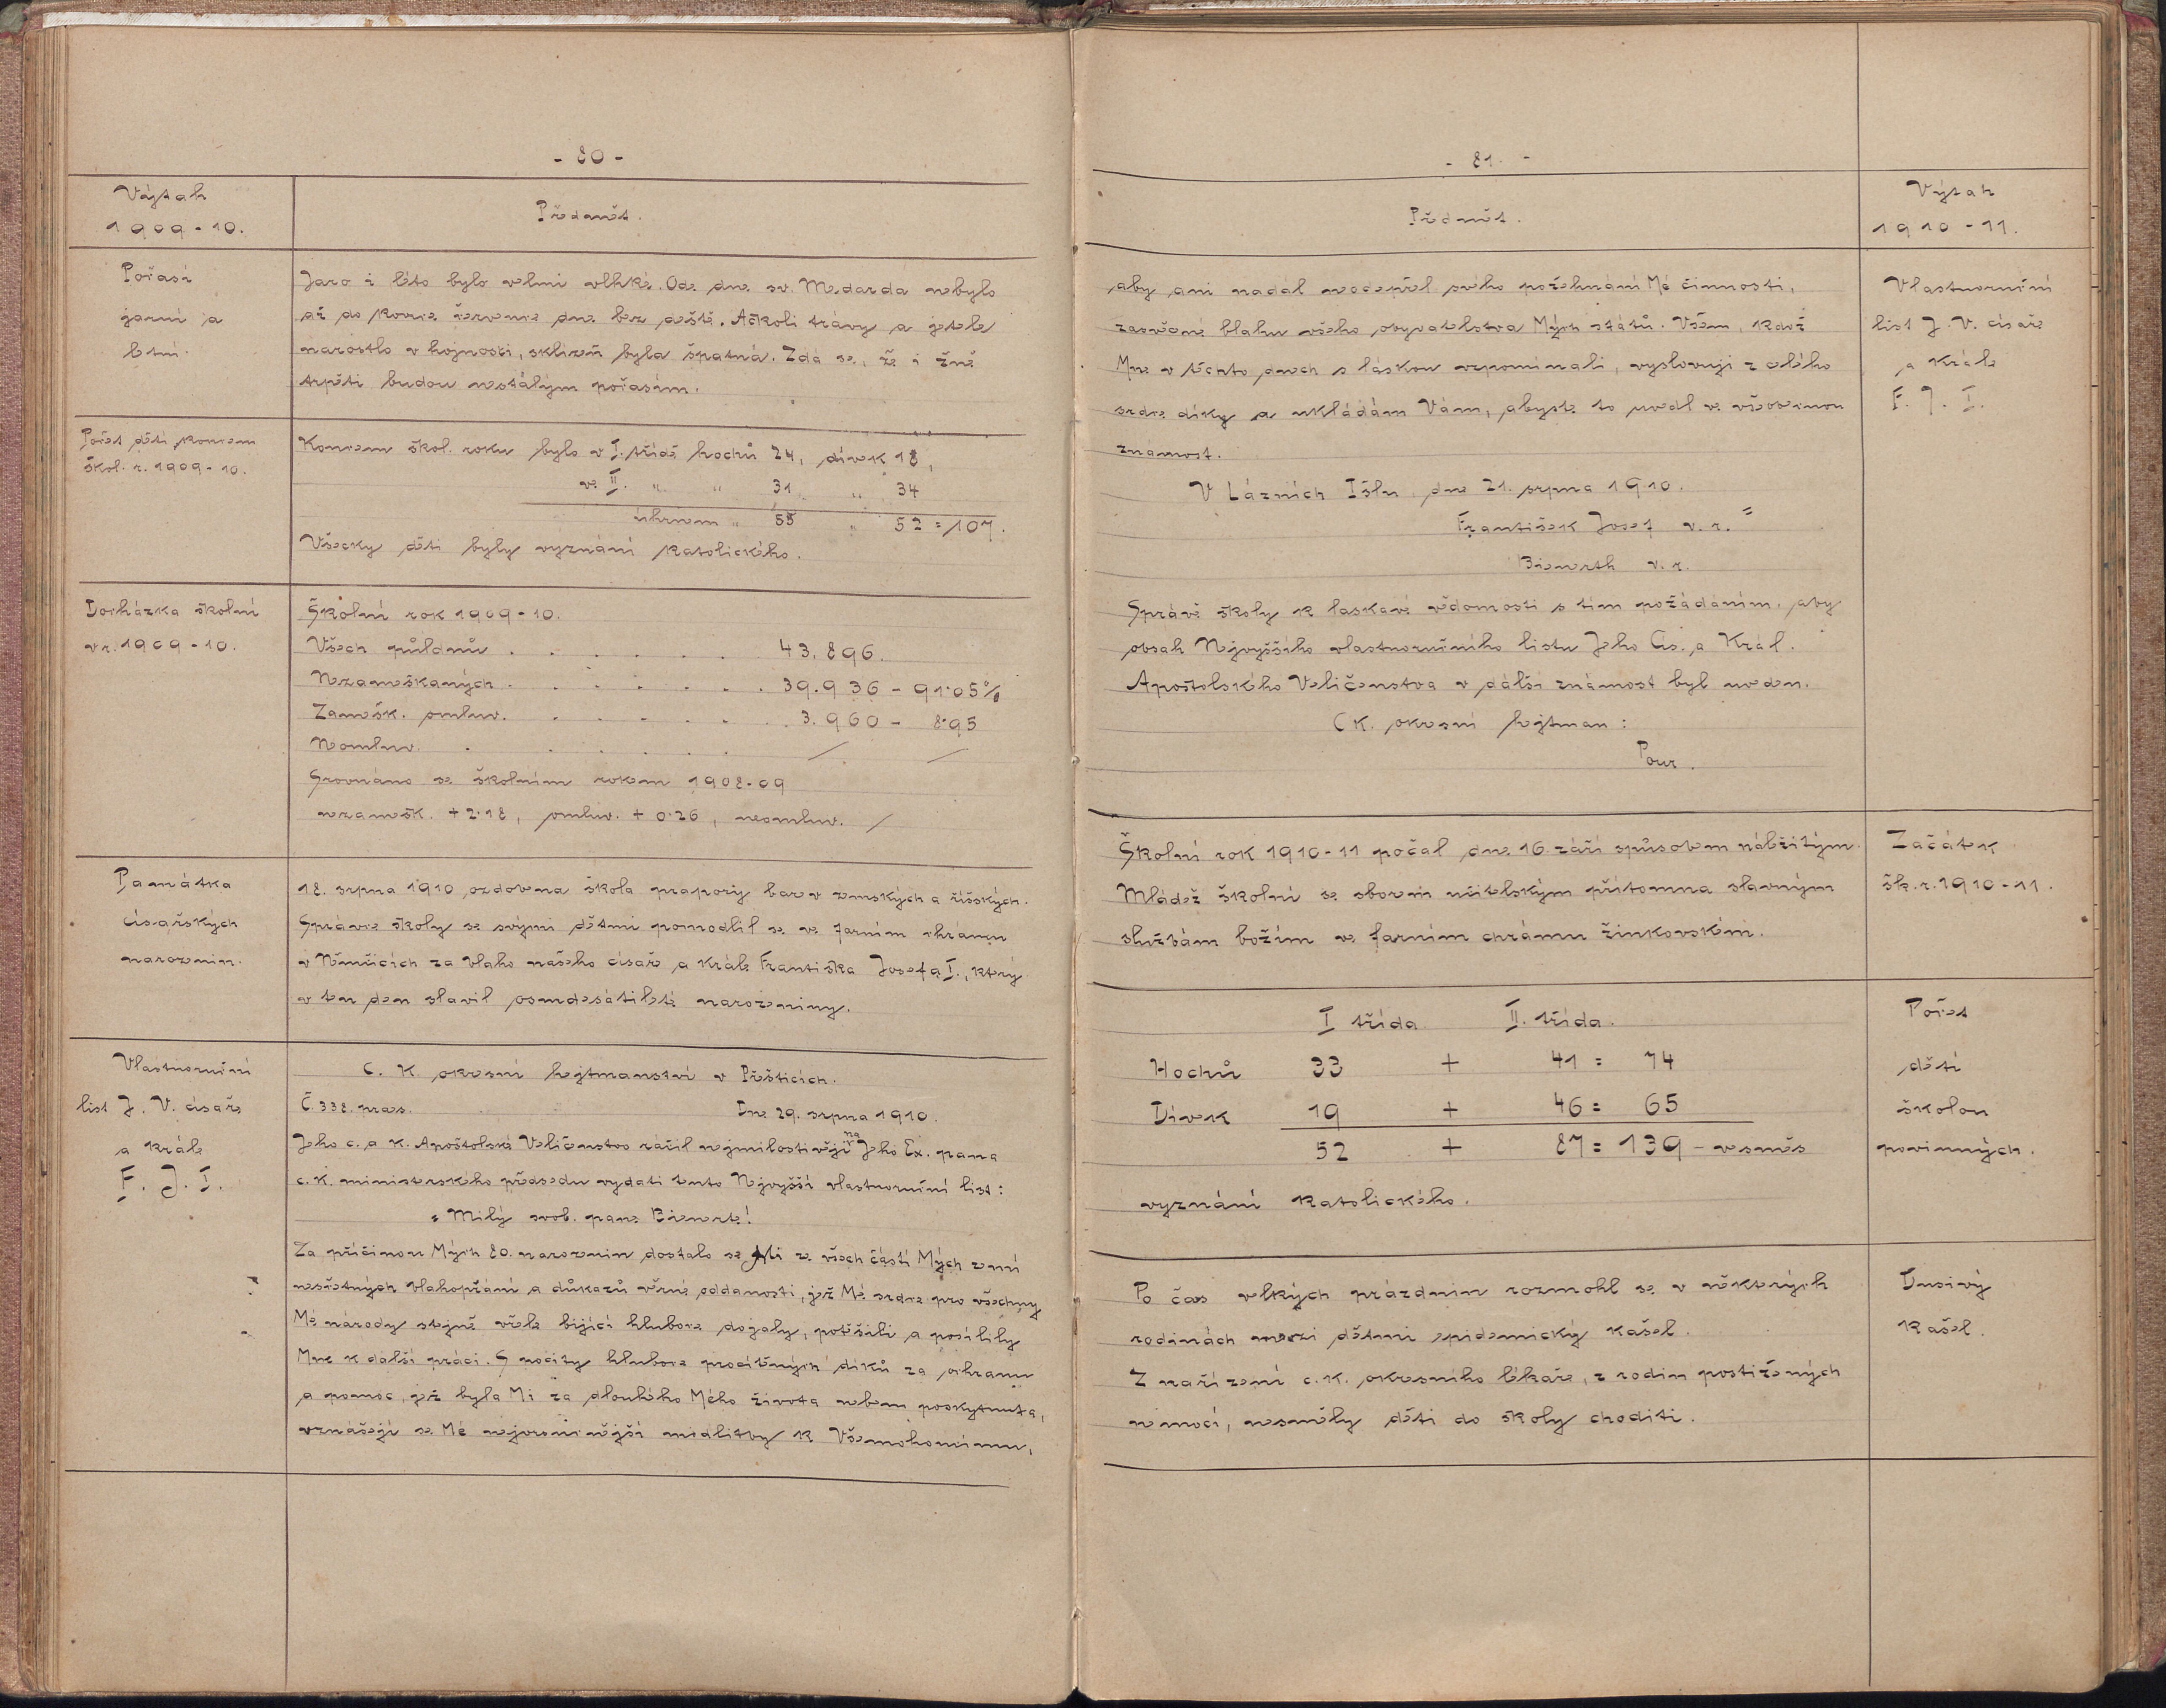 - 80 -
Výtah
1909-10.
Předmět.
Počasí
jarní a
letní.
Jaro i léto bylo velmi vlhké. Ode dne sv. Medarda nebylo
až do konce července dne bez deště. Ačkoli trávy a jetele
narostlo v hojnosti, sklizeň byla špatná. Zdá se, že i žně
trpěti budou nestálým počasím.
Počet dětí koncem
škol. r. 1909-10.
Koncem škol. roku bylo v I. třídě hochů 24, dívek 18,
ve II. " " 31 " 34
úhrnem " 55 " 52 = 107.
Všecky děti byly vyznání katolického.
Docházka školní
v r. 1909-10.
Školní rok 1909-10.
Všech půldnův . . . . . . . 43.896.
Nezameškaných . . . . . . . 39.936 - 91·05%
Zamešk. omluv. . . . . . . . 3.960 - 8·95
Neomluv. . . . . . . / /
Srovnáno se školním rokem 1908-09
nezamešk. + 2·18, omluv. + 0·26, neomluv. /
Památka
císařských
narozenin.
18. srpna 1910 ozdobena škola prapory barev zemských a říšských.
Správce školy se svými dětmi pomodlil se ve farním chrámu
v Němčicích za blaho našeho císaře a krále Františka Josefa I., který
v ten den slavil osmdesátileté narozeniny.
Vlastnoruční
list J. V. císaře
a krále
F. J. I.
C. K. okresní hejtmanství v Přešticích.
Č. 338. praes. Dne 29. srpna 1910.
Jeho c. a k. Apoštolské Veličenstvo ráčil nejmilostivěji na Jeho Ex. pana
c. k. ministerského předsedu vydati tento Nejvyšší vlastnoruční list:
"Milý svob. pane Bienerte!
Za příčinou Mých 80. narozenin dostalo se Mi ze všech částí Mých zemí
nesčetných blahopřání a důkazů věrné oddanosti, jež Mé srdce pro všechny
Mé národy stejně vřele bijící hluboce dojaly, potěšili a posílily
Mne k další práci. S pocity hluboce procítěných díků za ochranu
a pomoc, jež byla Mi za dlouhého Mého života nebem poskytnuta,
vznášejí se Mé nejvroucnější modlitby k Všemohoucímu,
- 81. -
Předmět.
Výtah
1910-11.
aby ani nadál neodepřel svého požehnání Mé činnosti,
zasvěcené blahu všeho obyvatelstva Mých států. Všem, kdož
Mne v těchto dnech s láskou vzpomínali, vyslovuji z celého
srdce díky a ukládám Vám, abyste to uvedl ve všeobecnou
známost.
V Lázních Išlu, dne 21. srpna 1910.
František Josef v. r. "
Bienerth v. r.
Správě školy k laskavé vědomosti s tím požádáním, aby
obsah Nejvyššího vlastnoručního listu Jeho Cís. a Král.
Apoštolského Veličenstva v další známost byl uveden.
C K. okresní hejtman:
Pour.
Vlastnoruční
list J. V. císaře
a krále
F. J. I.
Školní rok 1910-11 počal dne 16. září způsobem náležitým.
Mládež školní se sborem učitelským přítomna slavným
službám božím ve farním chrámu žinkovském.
Začátek
šk. r. 1910-11.
I třída. II. třída.
Hochů 33 + 41 = 74
Dívek 19 + 46 = 65
52 + 87 = 139 - vesměs
vyznání katolického.
Počet
dětí
školou
povinných.
Po čas velkých prázdnin rozmohl se v některých
rodinách mezi dětmi epidemický kašel.
Z nařízení c. k. okresního lékaře, z rodin postižených
nemocí, nesměly děti do školy choditi.
Dusivý
kašel.